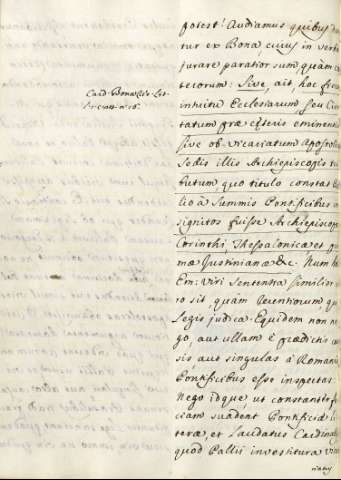 potest! Audiamus quibus
tur ex Bona, cuius in verba
jurare paratior sum quàm
ceterorum: Sive, ait, hoc
intuitu Ecclesiarum seu Civi
tatum præ cæteris eminenti
sive ob vicariatum Apostol
Sedis illis Archiepiscopis
butum quo titulo constat
lio à Summis Pontificibus
signitos fuisse Archiepiscop
Corinthi Thessalonicæ et
mæ Justinianæ &c. Num h
Em: Viri sententia similior
ro sit, quàm recentiorum qu
legis judica. Equidem non ne
go, aut ullam è prædictis
sis aut singulas à Romanis
Pontificibus esse inspectas.
Nego idque, ut constanter
ciam suadent Pontificiæ
teræ, et laudatus Cardinal
quod Pallii investitura
Card. Bona